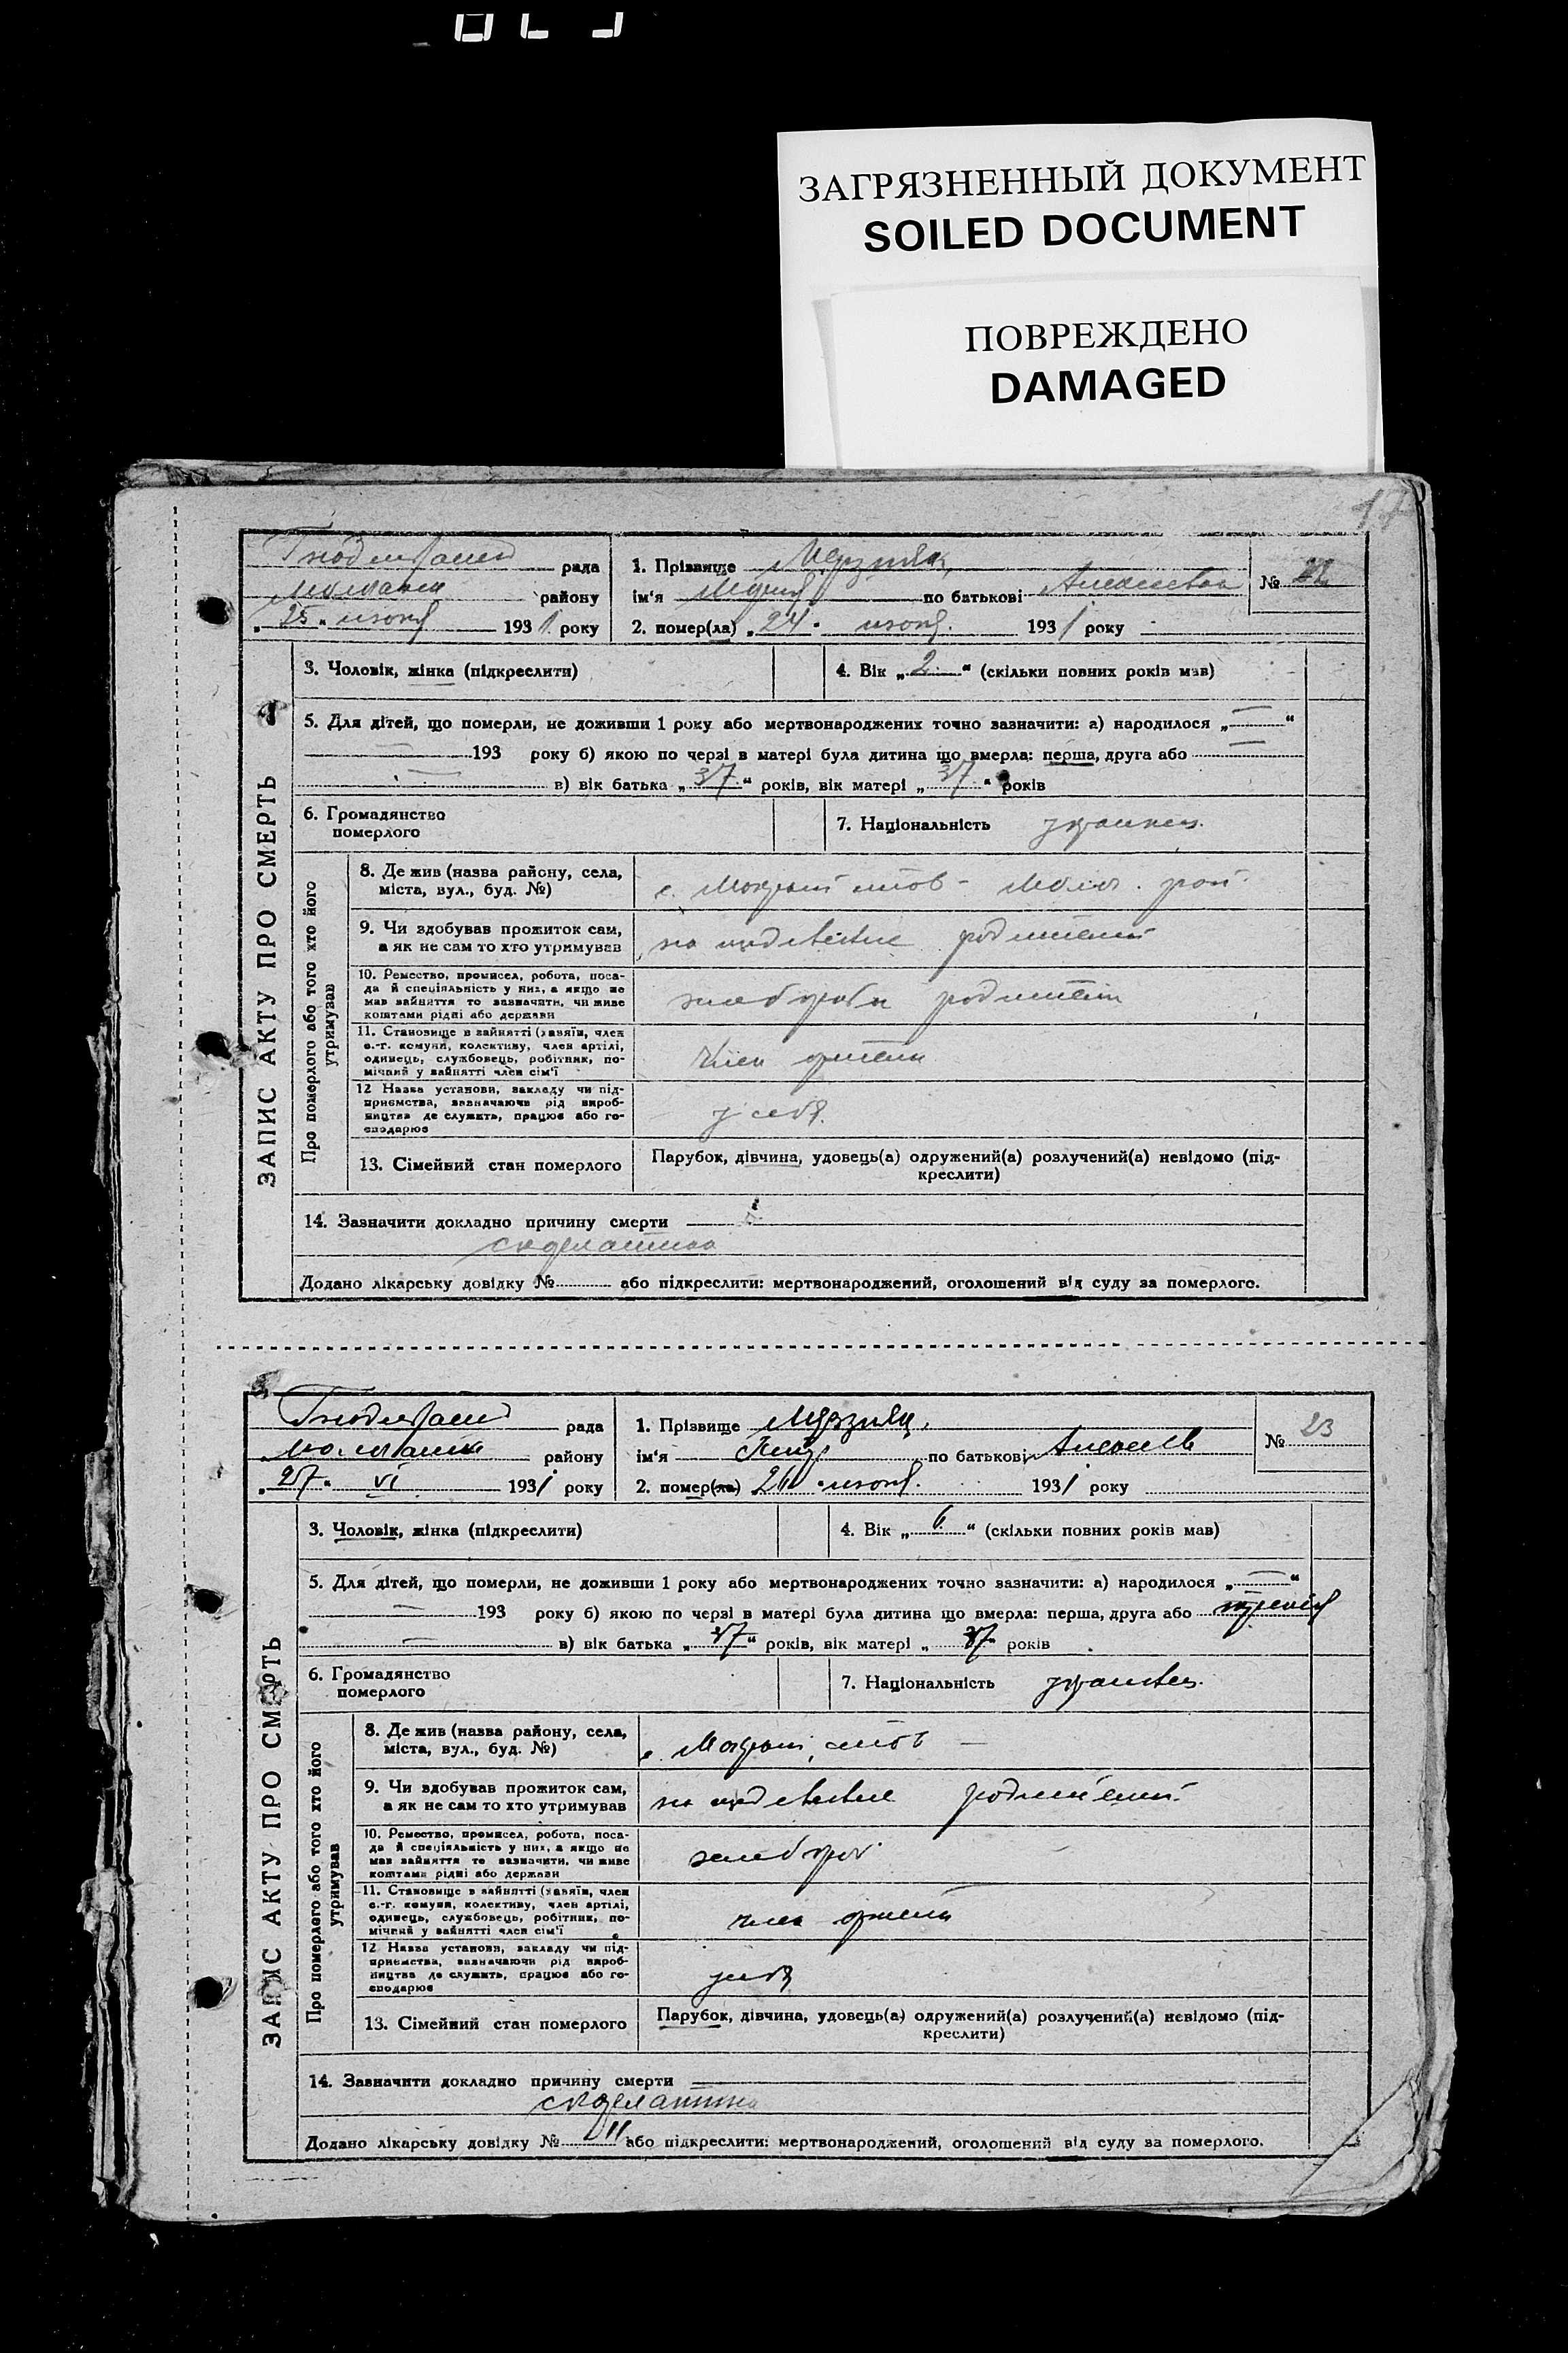 ЗАГРЯЗНЕННЫЙ ДОКУМЕНТ
SOILED DOCUMENT
ПОВРЕЖДЕНО
DAMAGED
17
рада
1. Прізвище Мерзляк
№ 22
району
ім'я Мария по батькові
„25„ июня 1931 року
2. помер(ла) „24" июня 1931 року
ЗАПИС АКТУ ПРО СМЕРТЬ
3. Чоловік, жінка (підкреслити)
4. Вік „2" (скільки повних років мав)
5. Для дітей, що померли, не доживши 1 року або мертвонароджених точно зазначити: а) народилося „—"
— 193 року б) якою по черзі в матері була дитина що вмерла: перша, друга або —
— в) вік батька „37" років, вік матері „37" років
6. Громадянство
померлого
7. Національність украинец.
Про померлого або того хто його
утримував
8. Де жив (назва району, села,
міста, вул., буд. №)
с.
9. Чи здобував прожиток сам,
а як не сам то хто утримував
на иждевение родителей
10. Ремество, промисел, робота, поса-
да й спеціяльність у них, а якщо не
мав зайняття то зазначити, чи живе
коштами рідні або держави
хлебороби родители
11. Становище в зайнятті (хазяїн, член
с.-г. комуни, колективу, член артілі,
одинець, службовець, робітник, по-
мічний у зайнятті член сім'ї
член артели
12 Назва установи, закладу чи під-
приємства, зазначаючи рід вироб-
ництва де служить, працює або го-
сподарює
у себя.
13. Сімейний стан померлого
Парубок, дівчина, удовець(а) одружений(а) розлучений(а) невідомо (під-
креслити)
14. Зазначити докладно причину смерти
скарлатина
Додано лікарську довідку № або підкреслити: мертвонароджений, оголошений від суду за померлого.
рада
1. Прізвище Мерзляк
№ 23
району
ім'я по батькові
„27„ VI 1931 року
2. помер(ла) 26 „июня. 1931 року
ЗАПИС АКТУ ПРО СМЕРТЬ
3. Чоловік, жінка (підкреслити)
4. Вік „6" (скільки повних років мав)
5. Для дітей, що померли, не доживши 1 року або мертвонароджених точно зазначити: а) народилося „—"
— 193 року б) якою по черзі в матері була дитина що вмерла: перша, друга або
— в) вік батька „37" років, вік матері „37" років
6. Громадянство
померлого
7. Національність украинец.
Про померлого або того хто його
утримував
8. Де жив (назва району, села,
міста, вул., буд. №)
с.
9. Чи здобував прожиток сам,
а як не сам то хто утримував
на иждевение родителей
10. Ремество, промисел, робота, поса-
да й спеціяльність у них, а якщо не
мав зайняття то зазначити, чи живе
коштами рідні або держави
хлебороб
11. Становище в зайнятті (хазяїн, член
с.-г. комуни, колективу, член артілі,
одинець, службовець, робітник, по-
мічний у зайнятті член сім'ї
член артели
12 Назва установи, закладу чи під-
приємства, зазначаючи рід вироб-
ництва де служить, працює або го-
сподарює
у себя
13. Сімейний стан померлого
Парубок, дівчина, удовець(а) одружений(а) розлучений(а) невідомо (під-
креслити)
14. Зазначити докладно причину смерти
скарлатина
Додано лікарську довідку № 11 або підкреслити: мертвонароджений, оголошений від суду за померлого.